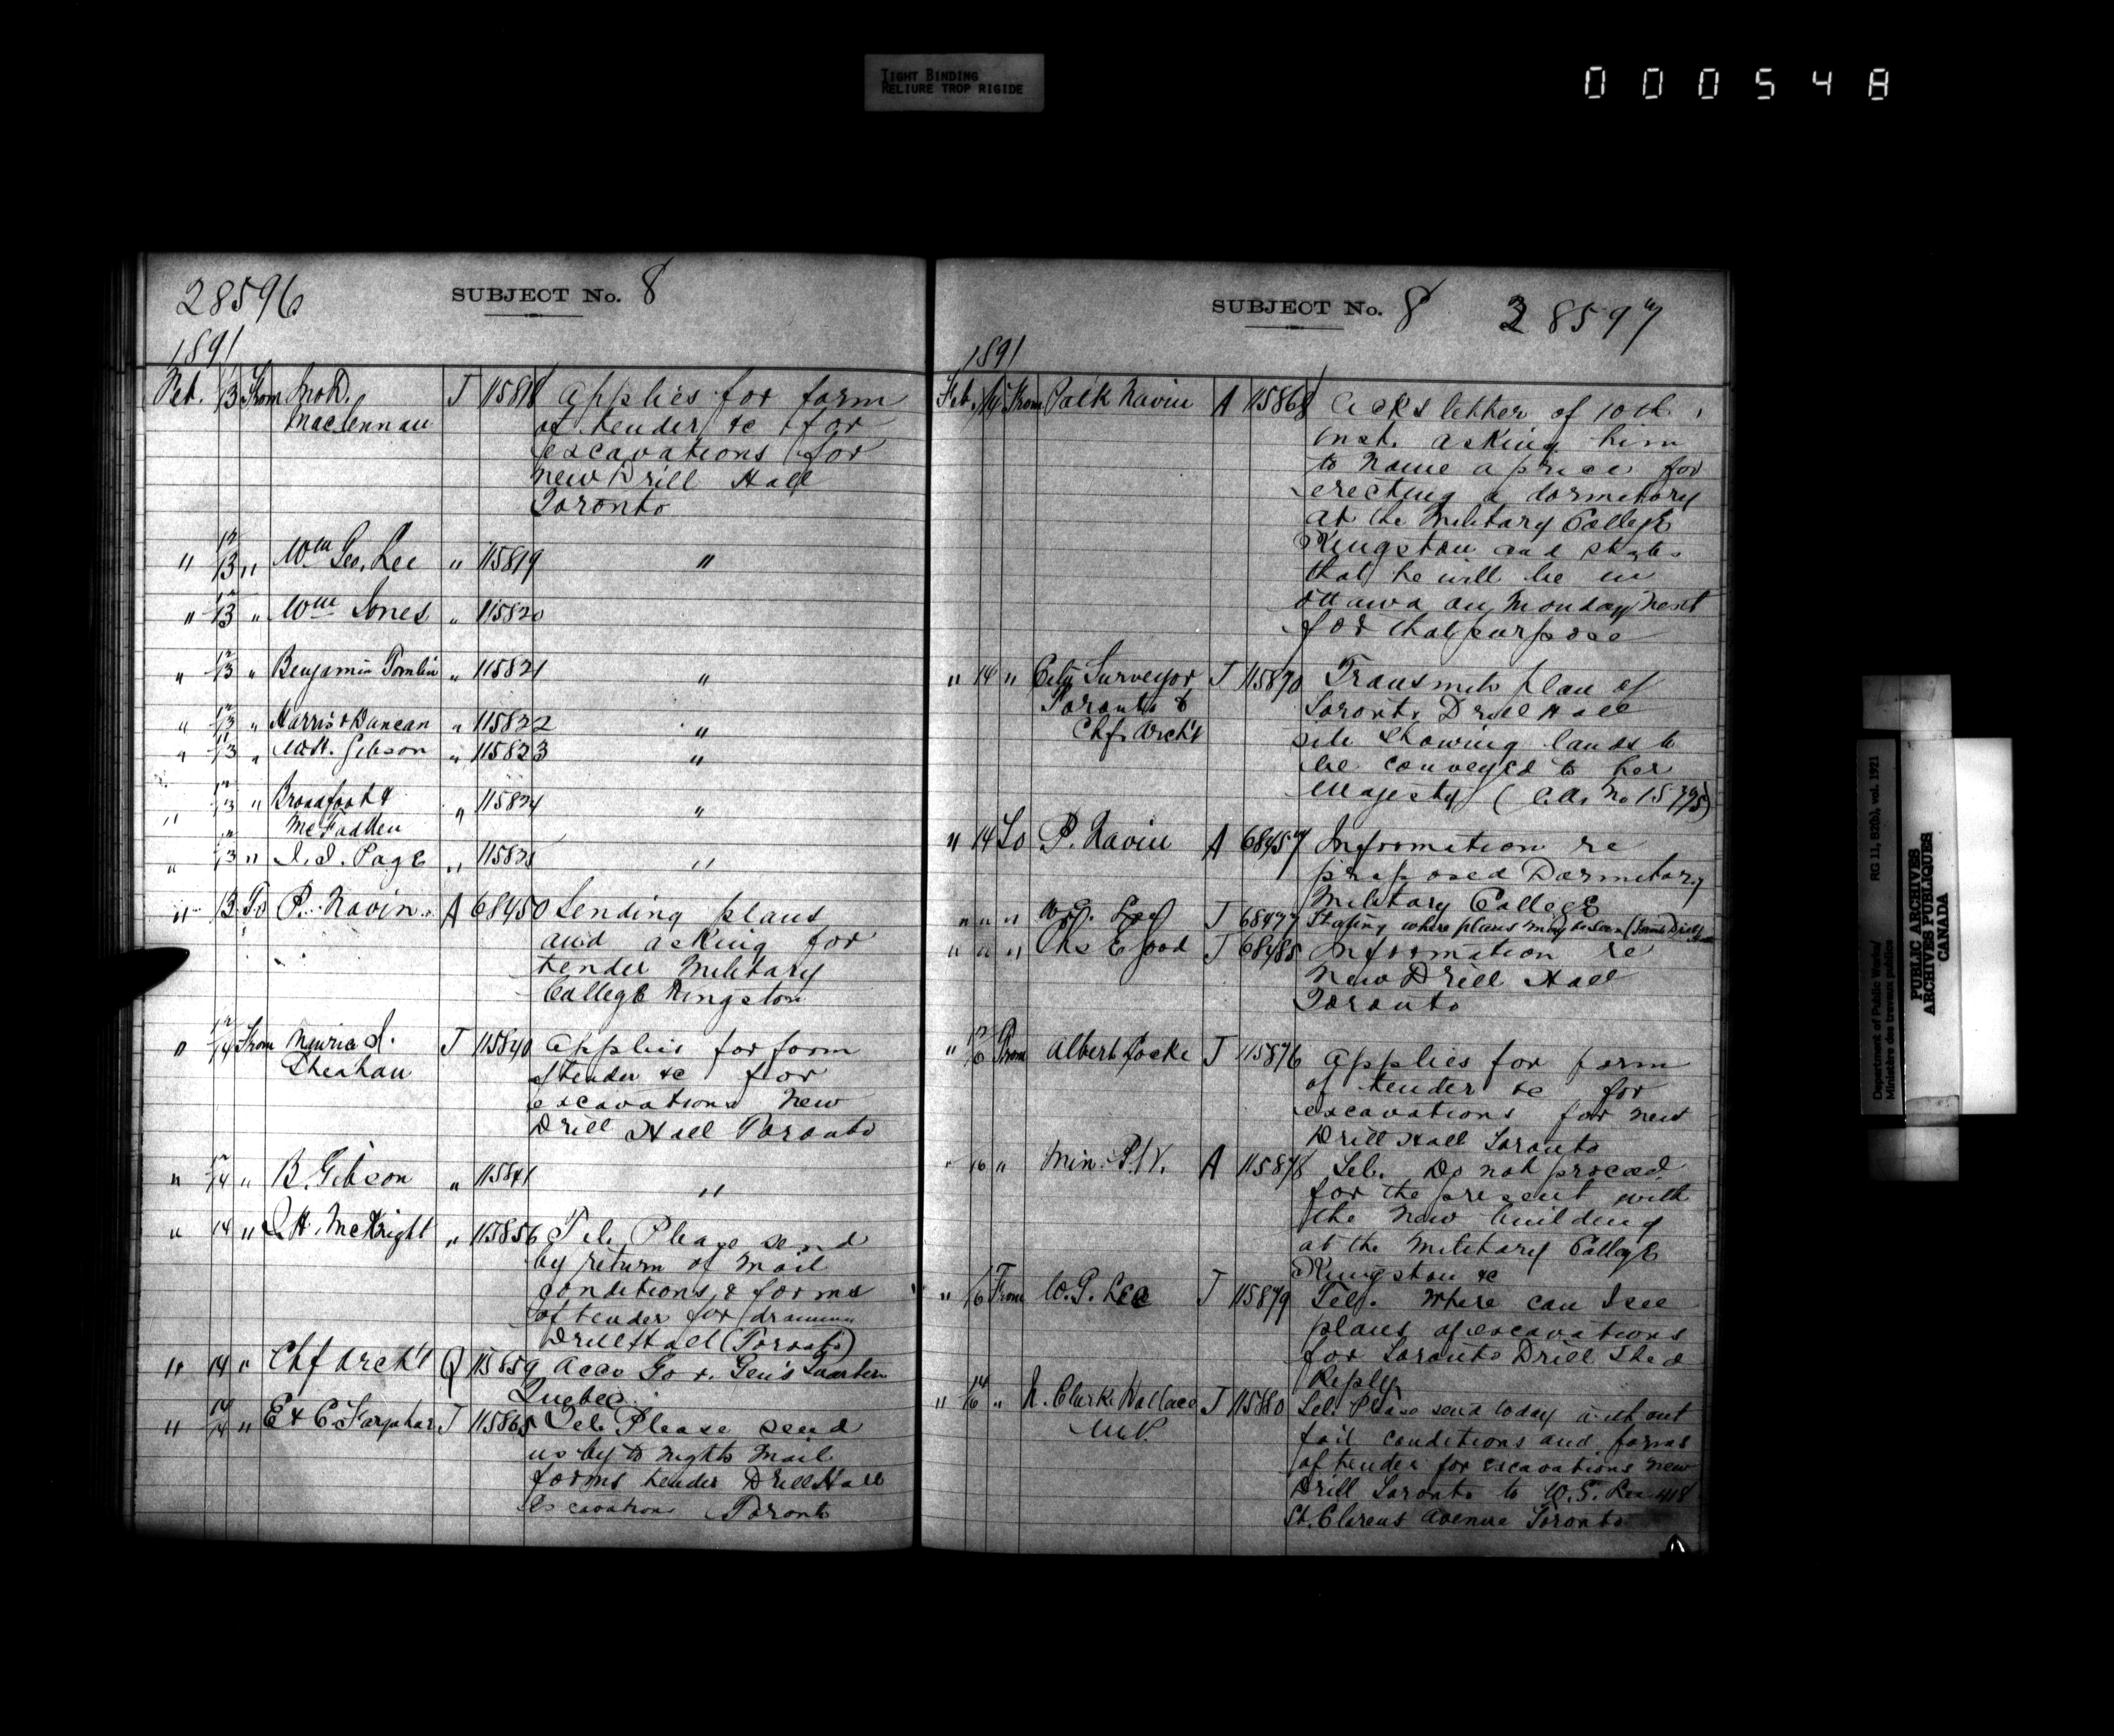 TIGHT BINDING
RELIURE TROP RIGIDE
000548
28596
SUBJECT No. 8
1891
Feb. 13 From Jno D. T 115818 Applies for form
Maclennan of tender &c for
excavations for
new Drill Hall
Toronto
" 12/13 " Wm Geo. Lee " 115819 "
" 12/13 " Wm Jones " 115820
" 12/13 " Benjamin Tomlin " 115821 "
" 12/13 " Harris & Duncan " 115822 "
" 11/13 " W.H. Gibson " 115823 "
" 12/13 " Broadfoot & " 115824 "
McFadden
" 13 " J. J. Page " 115825 "
" 13 To P. Navin A 68450 Sending plans
and asking for
tender Military
College Kingston
" 12/14 From Maurice J. T 115840 Applies for form
Sheahan of tender &c for
excavations new
Drill Hall Toronto
" 12/14 " B. Gibson " 115841 "
" 14 " J H. McKnight " 115856 Tel. Please send
by return of mail
conditions & forms
of tender for
Drill Hall (Toronto)
" 14 " Chf Arch't Q 115859 Acco Gov. Gen's Quarters
Quebec
" 14/14 " E & C. Farquhar T 115865 Tel. Please send
us by to nights mail
forms tender Drill Hall
Excavation Toronto
SUBJECT No. 8 28597
1891
Feb. 14 From Patk Navin A 115868 Acks letter of 10th
inst. asking him
to name a price for
erecting a dormitory
at the Military College
Kingston and states
that he will be in
Ottawa on Monday next
for that purpose
" 14 " City Surveyor T 115870 Transmits plan of
Toronto & Toronto Drill Hall
Chf. Arch't site showing lands to
be conveyed to her
Majesty (C.A. No 15795)
" 14 To P. Navin A 68457 Information re
proposed Dormitory
Military College
" " " W.G. Lee T 68477 Stating where plans may be seen (Toronto Drill Hall
" " " Chs E Good T 68485 Information re
New Drill Hall
Toronto
" 12/16 From Albert Locke T 115876 Applies for form
of tender &c for
excavations for new
Drill Hall Toronto
" 16 " Min. P.W. A 115878 Tel. Do not proceed
for the present with
the new building
at the Military College
Kingston &c
" 16 From W.G. Lee T 115879 Tel. Where can I see
plans of excavations
for Toronto Drill Shed
Reply
" 14/16 " N. Clarke Wallace T 115880 Tel. Please send today without
M.P. fail conditions and forms
of tender for excavations new
Drill Toronto to W.G. Lee 418
St. Clarens Avenue Toronto
Department of Public Works/ RG 11, B2(b), vol. 1921
Ministère des travaux publics
PUBLIC ARCHIVES
ARCHIVES PUBLIQUES
CANADA